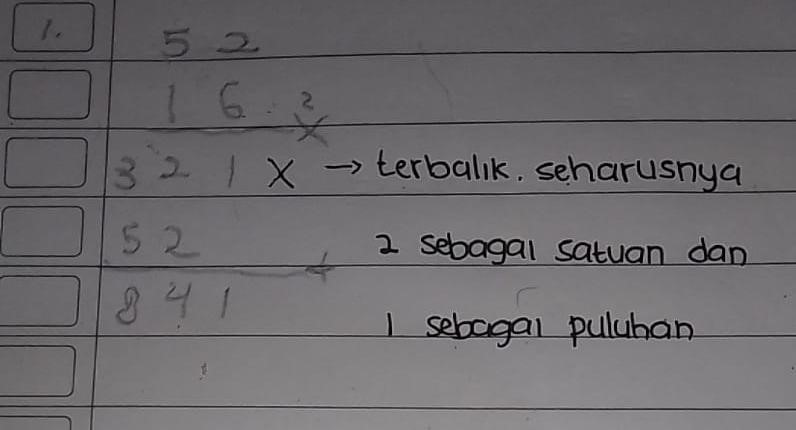 1. 5 2
1 6 2 x
3 2 1 x → terbalik. seharusnya
5 2 + 2 sebagai satuan dan
8 4 1 1 sebagai puluhan